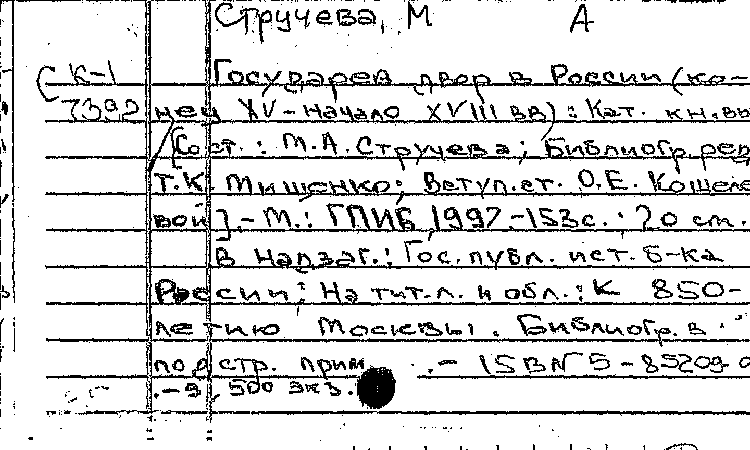 Стручева, М А
К-1 Государев двор в России (ко-
7392 нец XV-начало XVIII вв): Кат. кн.вы
[Сост.: М.А.Стручева; Библиогр.ред
Т.К. Мишенко; Вступ.ст. О.Е. Кошеле
вой].-М.: ГПИБ, 1997.-153с.; 20 см.
В надзаг.: Гос.публ. ист. б-ка
России; На тит.л. и обл.: К 850-
летию Москвы. Библиогр. в
подстр. прим .- ISBN 5-85209-0
.- , 500 экз.